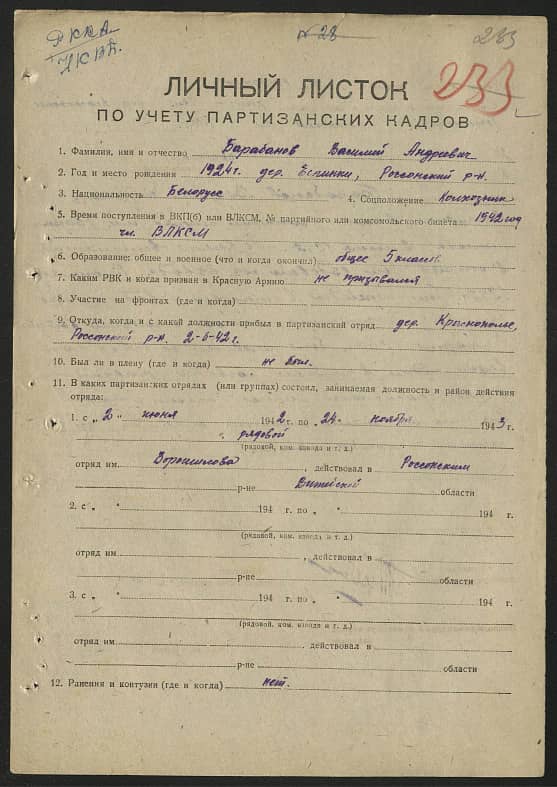 РККА
НКВД.
№ 28
233
233
ЛИЧНЫЙ ЛИСТОК
ПО УЧЕТУ ПАРТИЗАНСКИХ КАДРОВ
1. Фамилия, имя и отчество Барабанов Василий Андреевич
2. Год и место рождения 1924г. дер. Еспинки, Россонский р-н.
3. Национальность Белорусс 4. Соцположение Колхозник
5. Время поступления в ВКП(б) или ВЛКСМ, № партийного или комсомольского билета 1942 год
чл. ВЛКСМ
6. Образование: общее и военное (что и когда окончил) общее 5 классов.
7. Каким РВК и когда призван в Красную Армию не призывался
8. Участие на фронтах (где и когда)
9. Откуда, когда и с какой должности прибыл в партизанский отряд дер. Краснополье,
Россонский р-н. 2-6-42 г.
10. Был ли в плену (где и когда) не был.
11. В каких партизанских отрядах (или группах) состоял, занимаемая должность и район действия
отряда:
1. с „ 2 „ июня 1942 г. по „ 24 „ ноября 1943 г.
рядовой
(рядовой, ком. взвода и т. д.)
отряд им. Ворошилова, действовал в Россонским
р-не Витебской области
2. с „ " 194 г. по „ " 194 г.
(рядовой, ком. взвода и т. д.)
отряд им. , действовал в
р-не области
3. с „ " 194 г. по „ " 194 г.
(рядовой, ком. взвода и т. д.)
отряд им. , действовал в
р-не области
12. Ранения и контузии (где и когда) нет.